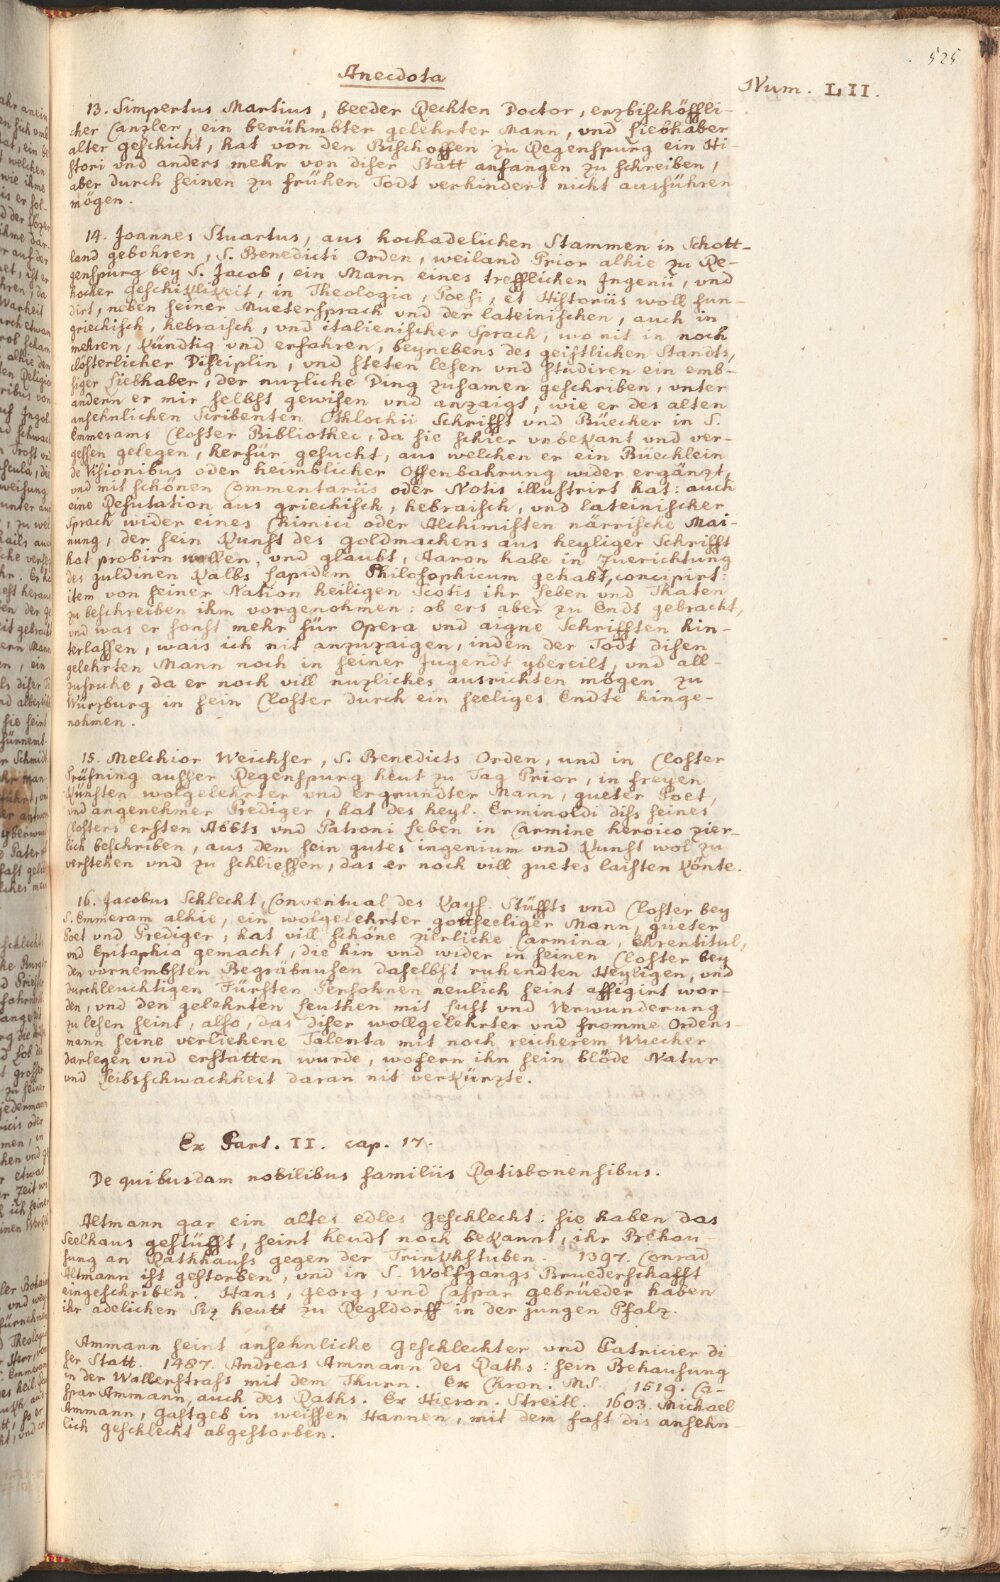 525
Anecdota
Num. LII.
13. Simpertus Martius, beeder Rechten Doctor, erzbischöffli-
cher Canzler, ein berühmbter gelehrter Mann, vnd Liebhaber
alter geschicht, hat von den Bischoffen zu Regenspurg ein Hi-
stori vnd anders mehr von diser Statt anfangen zu schreiben,
aber durch seinen zu frühen Todt verhindert nicht ausführen
mögen.
14. Joannes Stuartus, aus hochadelichen Stammen in Schott-
land gebohren, S. Benedicti Orden, weiland Prior alhie zu Re-
genspurg bey S. Jacob, ein Mann eines trefflichen Ingenii, vnd
hocher geschikLiKeit, in Theologia, Poesi, et Historiis woll fun-
dirt, neben seiner Muetersprach vnd der lateinischen, auch in
griechisch, hebraisch, vnd italienischer Sprach, wo nit in noch
mehren, Kündtig vnd erfahren, beynebens des geistlichen Standts,
closterlicher Disciplin, vnd steten lesen vnd studiren ein emb-
siger Liebhaber, der nuzliche Ding zusamen geschriben, vnter
andern er mir selbst gewisen vnd anzaigt, wie er des alten
ansehnlichen Scribenten Othlochii Schrifft vnd Büecher in S.
Emmerams Closter Bibliothec, da sie schier vnbeKant vnd ver-
gessen gelegen, herfür gesucht, aus welchen er ein Büechlein
de Visionibus oder heimblicher Offenbahrung wider ergänzt,
vnd mit schönen Commentariis oder Notis illustrirt hat: auch
eine Refutation aus griechisch, hebraisch, vnd lateinischer
Sprach wider eines Chimici oder Alchimisten närrische Mai-
nung, der sein Kunst des goldmachens aus heyliger Schrifft
hat probirn wollen, vnd glaubt, Aaron habe in Zuerichtung
des guldinen Kalbs lapidem Philosophicum gehabt, concipirt:
item von seiner Nation heiligen Scotis ihr Leben vnd Thaten
zu beschreiben ihm vorgenohmen: ob ers aber zu Ends gebracht,
vnd was er sonst mehr für Opera vnd aigne Schrifften hin-
terlassen, wais ich nit anzuzaigen, indem der Todt disen
gelehrten Mann noch in seiner Jugendt ybereilt, vnd all-
zufruhe, da er noch vill nuzliches ausrichten mögen zu
Würzburg in sein Closter durch ein seeliges Endte hinge-
nohmen.
15. Melchior Weichser, S. Benedicts Orden, und in Closter
Prüfning ausser Regenspurg heut zu Tag Prior, in freyen
Künsten wolgelehrter vnd ergrundter Mann, gueter Poet,
vnd angenehmer Prediger, hat des heyl. Erminoldi diss seines
Closters ersten Abbts vnd Patroni Leben in Carmine heroico zier-
lich beschriben, aus dem sein gutes ingenium vnd Kunst wol zu
verstehen vnd zu schliessen, das er noch vill guetes laisten Könte.
16. Jacobus Schlecht, Conventual des Kays. Stüffts vnd Closter bey
S. Emmeram alhie, ein wolgelehrter gottseeliger Mann, gueter
Poet vnd Prediger, hat vill schöne zierliche Carmina, Ehrentitul,
vnd Epitaphia gemacht, die hin vnd wider in seinen Closter bey
den vornembsten Begräbnusen daselbst ruhendten Heyligen, vnd
durchleuchtigen Fürsten Persohnen neulich seint affigirt wor-
den, vnd den gelehrten Leuthen mit Lust vnd Verwunderung
zu lesen seint, also, das diser wollgelehrter vnd fromme Ordens-
mann seine verliehene Talenta mit noch reicherem Wuecher
darlegen vnd erstatten wurde, wofern ihn sein blöde Natur
vnd Leibsschwachheit daran nit verKürzte.
Ex Part. II. cap. 17.
De quibusdam nobilibus familiis Ratisbonensibus.
Altmann gar ein altes edles geschlecht: sie haben das
Seelhaus gestüfft, seint heudt noch beKannt, ihr Behau-
sung an Rathhauss gegen der TrinKhstuben. 1397. Conrad
Altmann ist gestorben, vnd in S. Wolfgangs Bruederschafft
eingeschriben. Hans, georg, vnd Caspar gebrüeder haben
ihr adelichen Siz heutt zu Regldorff in der jungen Pfalz.
Ammann seint ansehnliche geschlechter vnd Patricier di
ser Statt. 1487. Andreas Ammann des Raths: sein Behausung
in der Wallerstrass mit dem Thurn. Ex Chron. MS. 1519. Ca-
spar Ammann, auch des Raths. Ex Hieron. Streitl. 1603. Michael
Ammann, gastgeb in weissen Hannen, mit dem fast dis ansehn-
lich geschlecht abgestorben.